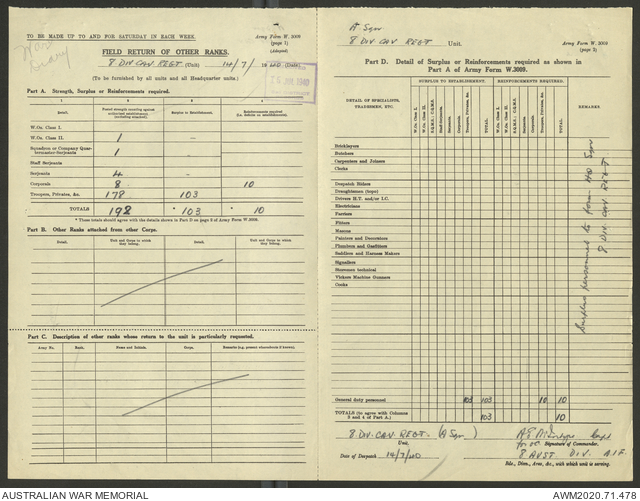 TO BE MADE UP TO AND FOR SATURDAY IN EACH WEEK.
Army Form W. 3009
(page 1)
(Adapted)
War Diary
FIELD RETURN OF OTHER RANKS.
8 DIV CAV REGT (Unit) 14/7/1940 (Date).
(To be furnished by all units and all Headquarter units.)
Part A. Strength, Surplus or Reinforcements required.
1 2 3 4
Detail. Posted strength counting against authorized establishment (excluding attached). Surplus to Establishment. Reinforcements required (i.e. deficits on establishment).
W.Os. Class I.
W.Os. Class II. 1
Squadron or Company Quartermaster-Serjeants 1
Staff Serjeants
Serjeants 4
Corporals 8 10
Troopers, Privates, &c. 178 103
TOTALS 192 * 103 * 10
* These totals should agree with the details shown in Part D on page 2 of Army Form W.3009.
Part B. Other Ranks attached from other Corps.
Detail. Unit and Corps to which they belong. Detail. Unit and Corps to which they belong.
Part C. Description of other ranks whose return to the unit is particularly requested.
Army No. Rank. Name and Initials. Corps. Remarks (e.g. present whereabouts if known).
A Sqn
8 DIV CAV REGT Unit.
Army Form W. 3009
(page 2)
Part D. Detail of Surplus or Reinforcements required as shown in
Part A of Army Form W.3009.
DETAIL OF SPECIALISTS, TRADESMEN, ETC.
SURPLUS TO ESTABLISHMENT. REINFORCEMENTS REQUIRED.
W.Os. Class I. W.Os. Class II. S.Q.M.S., C.Q.M.S. Staff Serjeants. Serjeants. Corporals. Troopers, Privates, &c. TOTAL.
W.Os. Class I. W.Os. Class II. S.Q.M.S., C.Q.M.S. Serjeants. Corporals. Troopers, Privates, &c. TOTAL.
REMARKS
Bricklayers
Butchers
Carpenters and Joiners
Clerks
Despatch Riders
Draughtsmen (topo)
Drivers H.T. and/or I.C.
Electricians
Farriers
Fitters
Masons
Painters and Decorators
Plumbers and Gasfitters
Saddlers and Harness Makers
Signallers
Storemen technical
Vickers Machine Gunners
Cooks
Surplus personnel to form HQ Sqn
8 DIV. CAV REGT
General duty personnel 103 103 10 10
TOTALS (to agree with Columns 3 and 4 of Part A). 103 10
8 DIV. CAV. REGT. (A Sqn)
Unit.
Capt
for OC Signature of Commander.
Date of Despatch 14/7/40
8 AUST. DIV. A.I.F.
Bde., Divn., Area, &c., with which unit is serving.
AUSTRALIAN WAR MEMORIAL
AWM2020.71.478